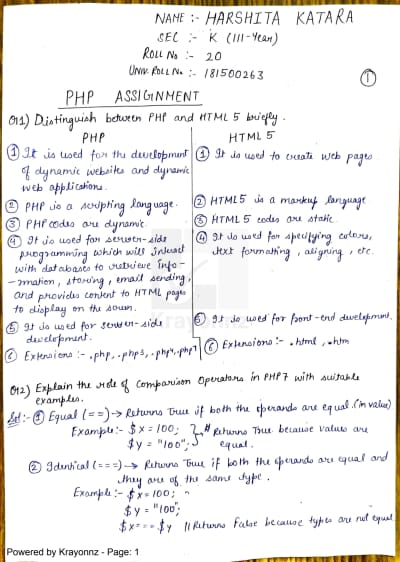 NAME :- HARSHITA KATARA
SEC :- K (III-Year)
ROLL No :- 20
UNIV. ROLL No. :- 181500263
①
PHP ASSIGNMENT
Q1) Distinguish between PHP and HTML 5 briefly.
PHP
① It is used for the development
of dynamic websites and dynamic
web applications.
② PHP is a scripting language.
③ PHP codes are dynamic.
④ It is used for server-side
programming which will interact
with databases to retrieve info-
-rmation, storing, email sending,
and provides content to HTML pages
to display on the screen.
⑤ It is used for server-side
development.
⑥ Extensions :- .php, .php3, .php4, .php7
HTML 5
① It is used to create web pages.
② HTML5 is a markup language
③ HTML 5 codes are static.
④ It is used for specifying colors,
text formatting, aligning, etc.
⑤ It is used for front-end development.
⑥ Extensions :- .html, .htm
Krayonnz
Q2) Explain the role of Comparison Operators in PHP7 with suitable
examples.
Sol :- ① Equal (==) → Returns True if both the operands are equal. (in value)
Example :- $x = 100; } # Returns True because values are
$y = "100"; equal.
② Identical (===) → Returns True if both the operands are equal and
they are of the same type.
Example :- $x = 100;
$y = "100";
$x === $y // Returns False because types are not equal
Powered by Krayonnz - Page: 1